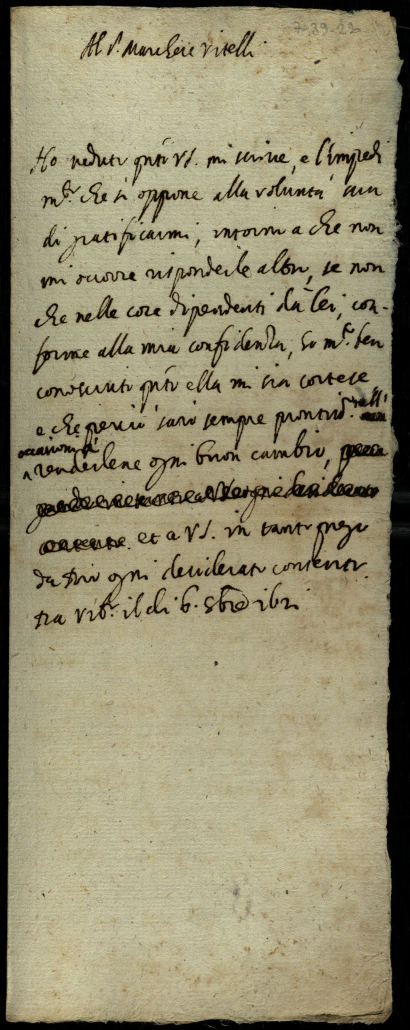 7-39-23
Al S.r Marchese Vitelli
Ho veduto qnto VS. mi scrive, e l'impedi
m.to che si oppone alla volontà sua
di gratificarmi, intorno a che non
mi occorre risponderle altro, se non
che nelle cose dipendenti da lei, con-
forme alla mia confidenza, ho m.to ben
conosciuto qnto ella mi sia cortese
e che perciò sarò sempre prontiss.o nell'
occasioni di
renderlene ogni buon cambio,
et a VS. in tanto prego
da Dio ogni desiderato contento.
Da Vit.o il di 6. 8bre